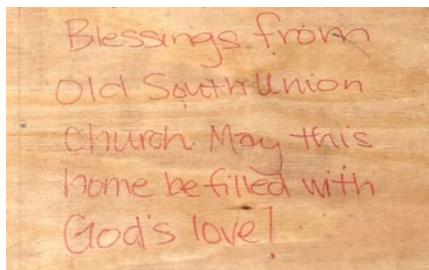 Blessings from
Old South Union
Church. May this
home be filled with
God's love!